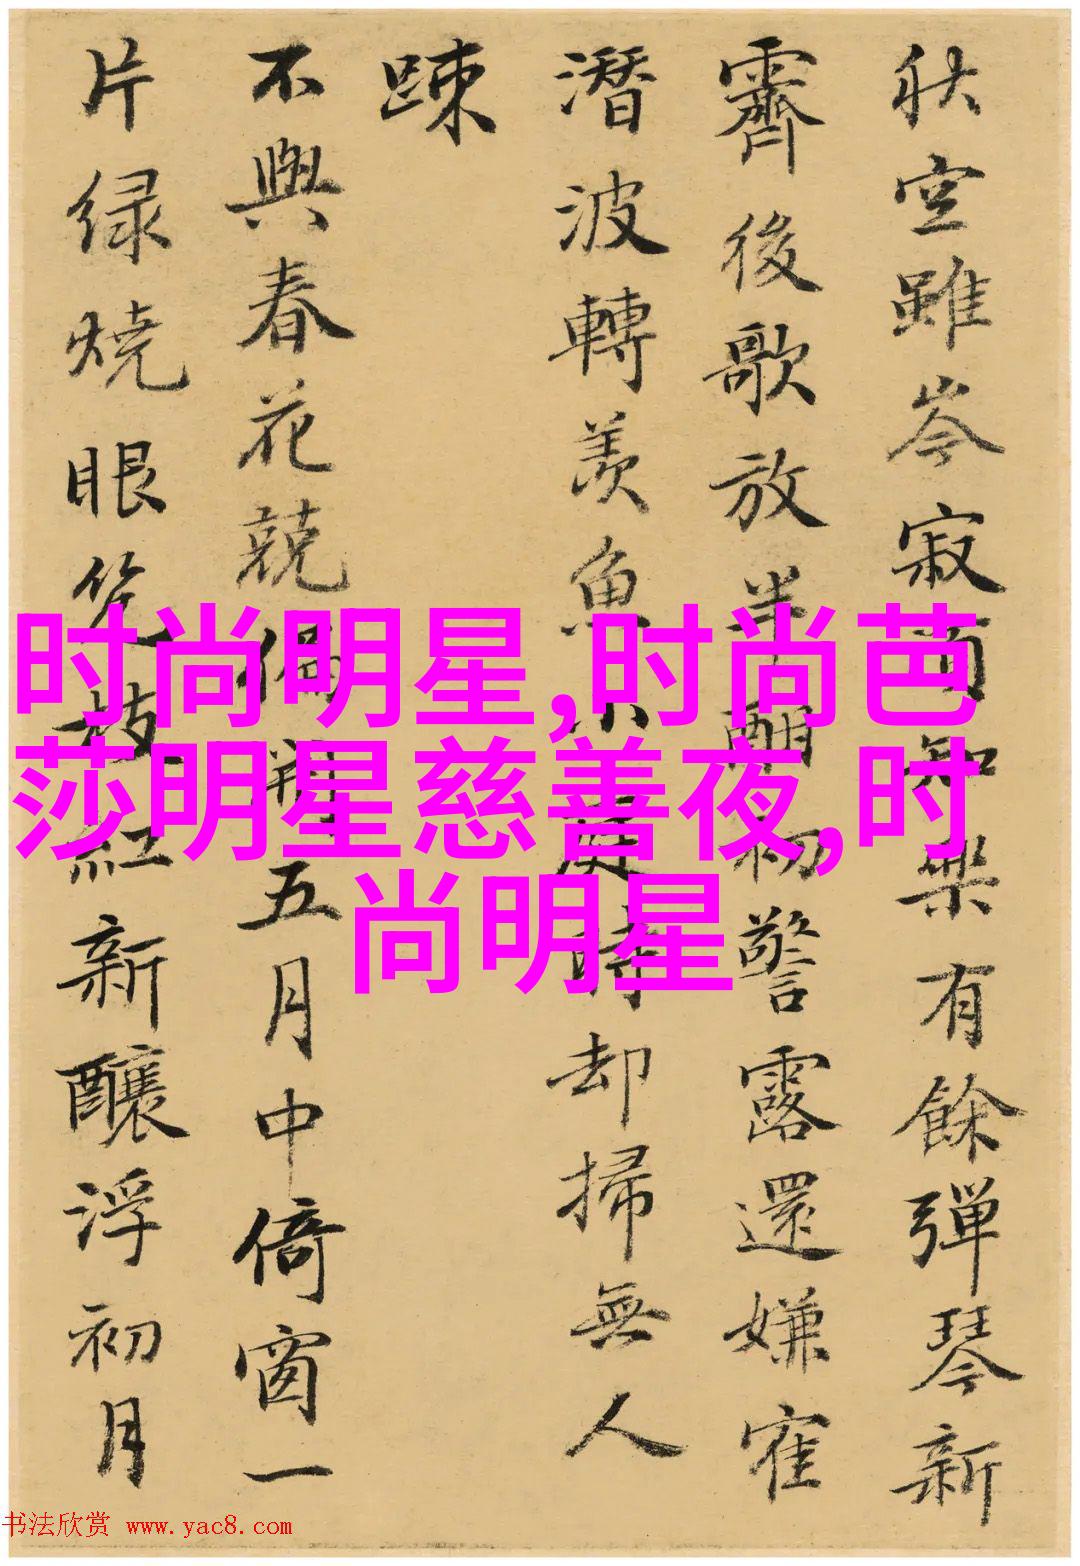 秋空雖岑寂知樂有餘彈琴新
霽後歌放半酣初警露還嫌寉
潛波轉羨魚庭時却掃無人
踈
不與春花競偏開五月中倚窗一
片緑燒眼幾枝紅新釀浮初月
时尚明星,时尚芭
莎明星慈善夜,时
尚明星
书法欣赏 www.yac8.com